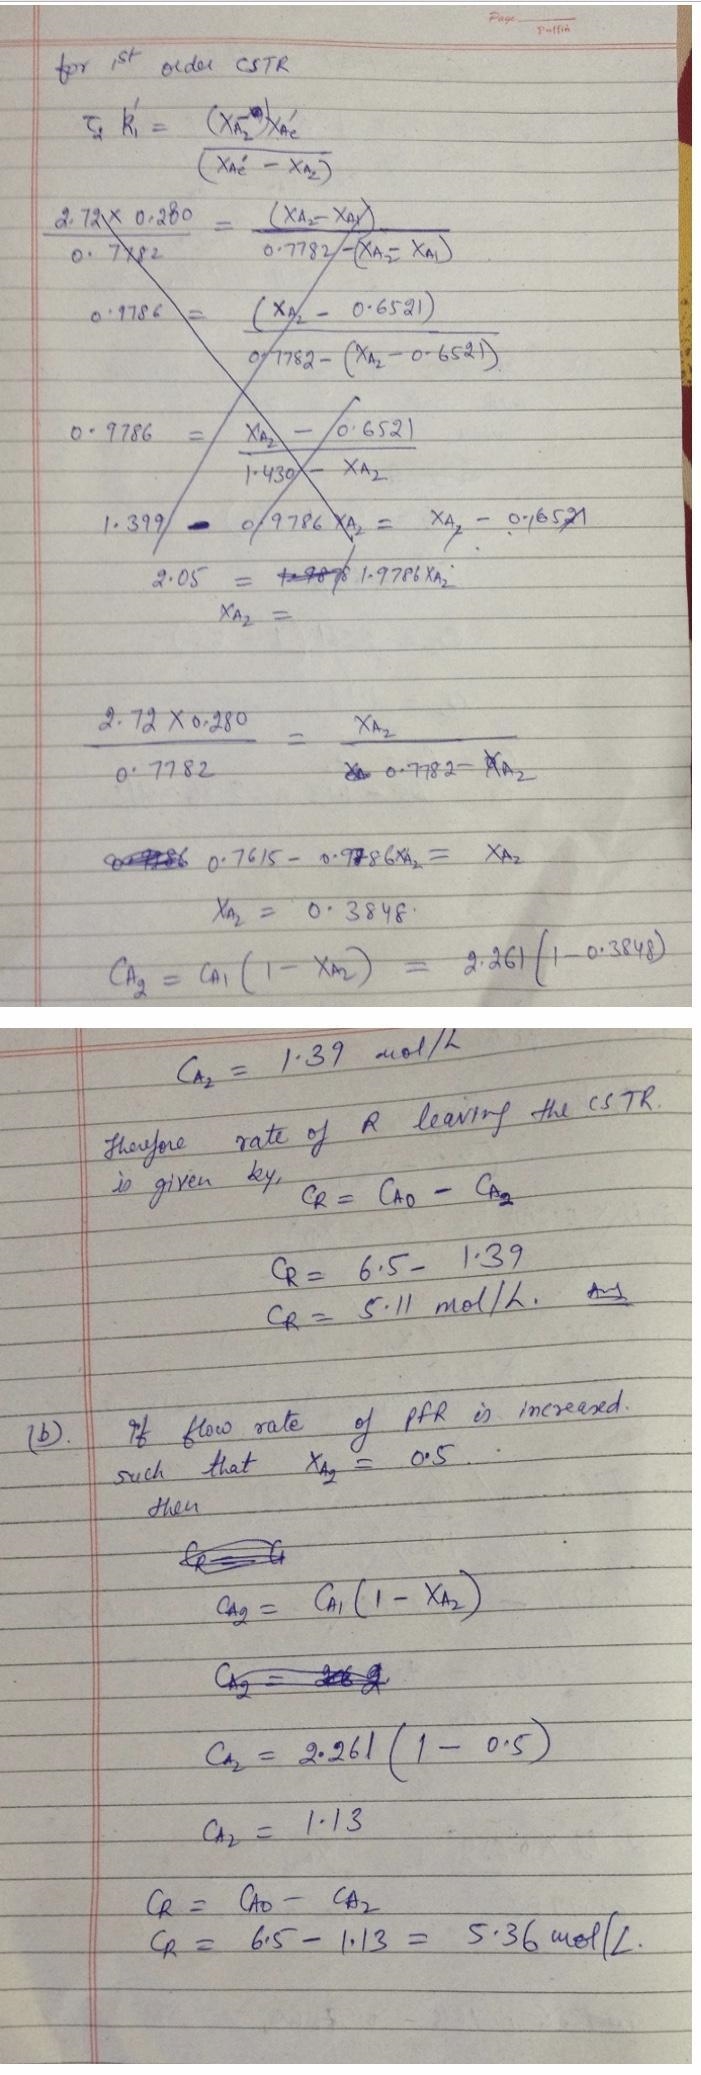 Page
Puffin
for 1st order CSTR
τ2 k1' = (XA2) XAe' / (XAe' - XA2)
2.72 × 0.280 / 0.7782 = (XA2 - XA1) / 0.7782 - (XA2 - XA1)
0.9786 = (XA2 - 0.6521) / 0.7782 - (XA2 - 0.6521)
0.9786 = XA2 - 0.6521 / 1.430 - XA2
1.399 - 0.9786 XA2 = XA2 - 0.6521
2.05 = 1.9786 XA2
XA2 =
2.72 × 0.280 / 0.7782 = XA2 / 0.7782 - XA2
0.7615 - 0.9786 XA2 = XA2
XA2 = 0.3848.
CA2 = CA1 (1 - XA2) = 2.261 (1 - 0.3848)
CA2 = 1.39 mol/L
Therefore rate of R leaving the CSTR.
is given by,
CR = CA0 - CA2
CR = 6.5 - 1.39
CR = 5.11 mol/L. Ans
(b). If flow rate of PFR is increased.
such that XA2 = 0.5.
then
CA2 = CA1 (1 - XA2)
CA2 = 2.261 (1 - 0.5)
CA2 = 1.13
CR = CA0 - CA2
CR = 6.5 - 1.13 = 5.36 mol/L.